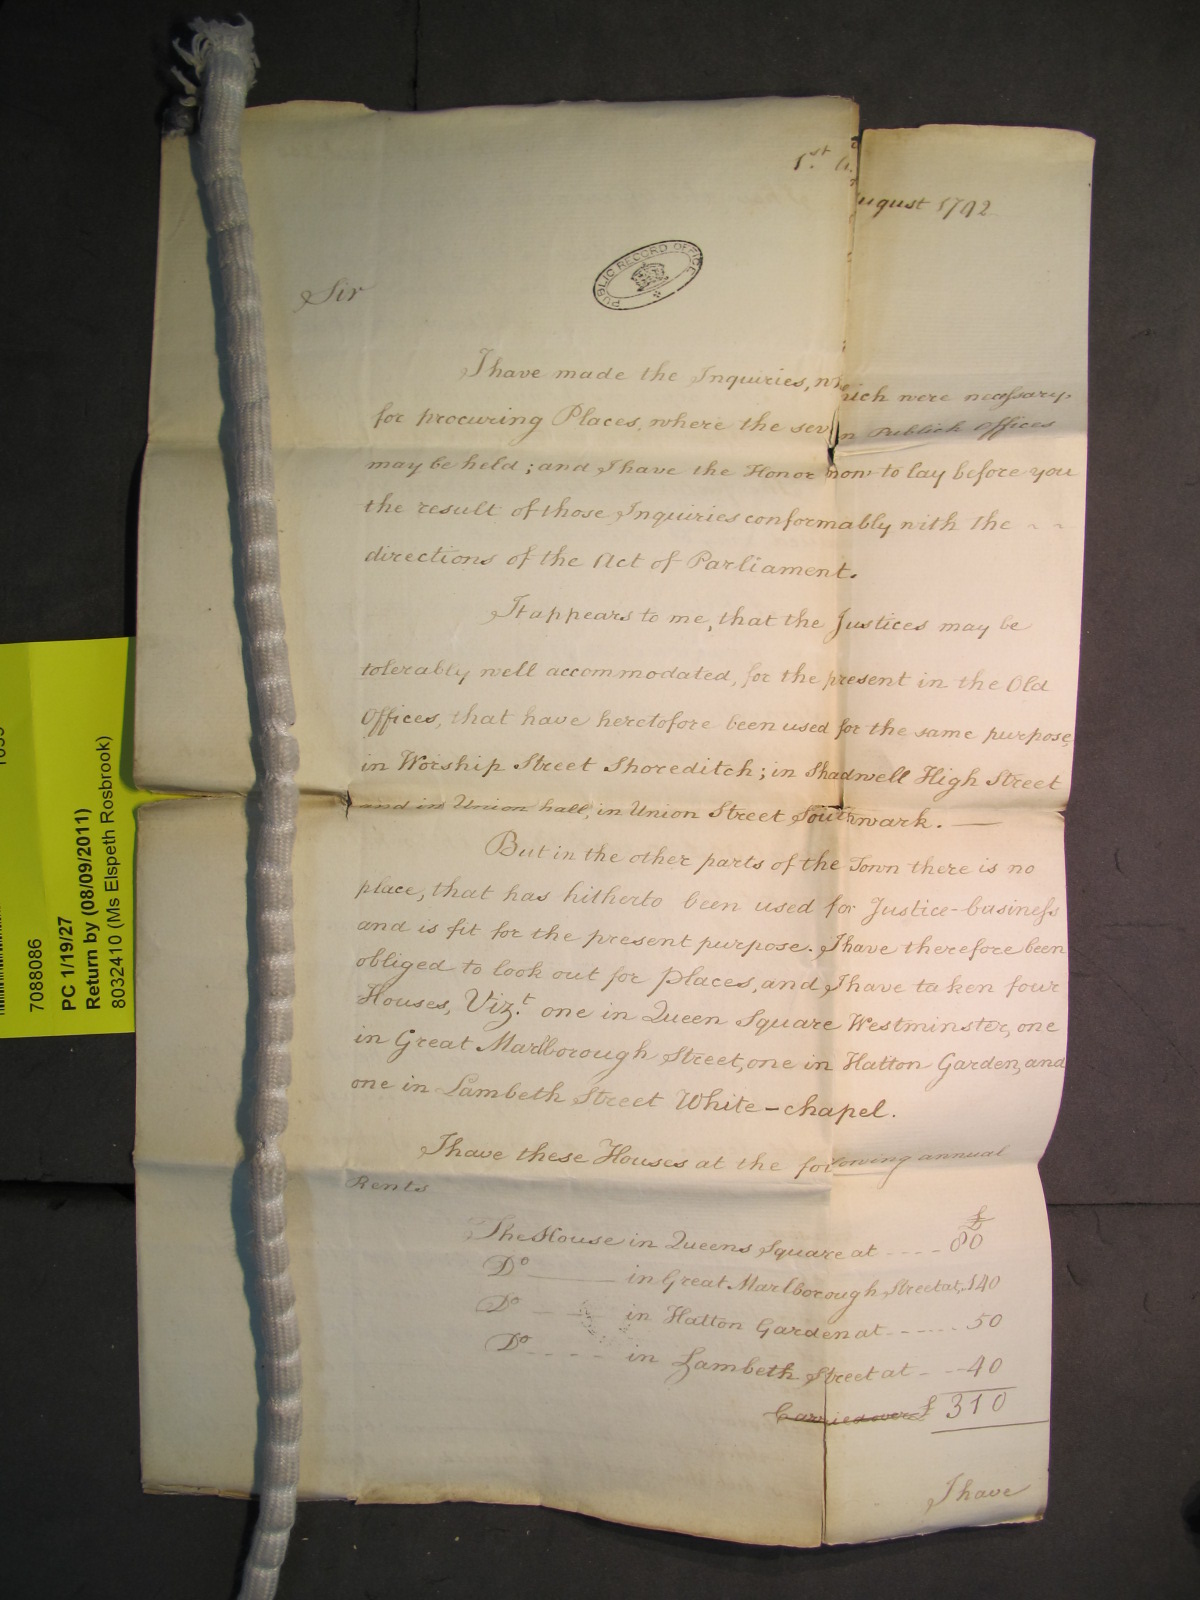 1.st August 1792
PUBLIC RECORD OFFICE
Sir
I have made the Inquiries, which were necessary,
for procuring Places, where the seven Publick Offices
may be held; and I have the Honor now to lay before you
the result of those Inquiries conformably with the - -
directions of the Act of Parliament.
It appears to me, that the Justices may be
tolerably well accommodated, for the present in the Old
Offices, that have heretofore been used for the same purpose,
in Worship Street Shoreditch; in Shadwell High Street
and in Union hall, in Union Street Southwark. —
But in the other parts of the Town there is no
place, that has hitherto been used for Justice-business
and is fit for the present purpose. I have therefore been
obliged to look out for Places, and I have taken four
Houses, Viz.t one in Queen Square Westminster, one
in Great Marlborough Street, one in Hatton Garden, and
one in Lambeth Street White-chapel.
I have these Houses at the following annual
Rents
£
The House in Queens Square at - - - - 80
Do ——— in Great Marlborough Street at .. 140
Do — — in Hatton Garden at - - - - - 50
Do - - - - in Lambeth Street at - - - 40
Carried over £ 310
I have
7088086
PC 1/19/27
Return by (08/09/2011)
8032410 (Ms Elspeth Rosbrook)